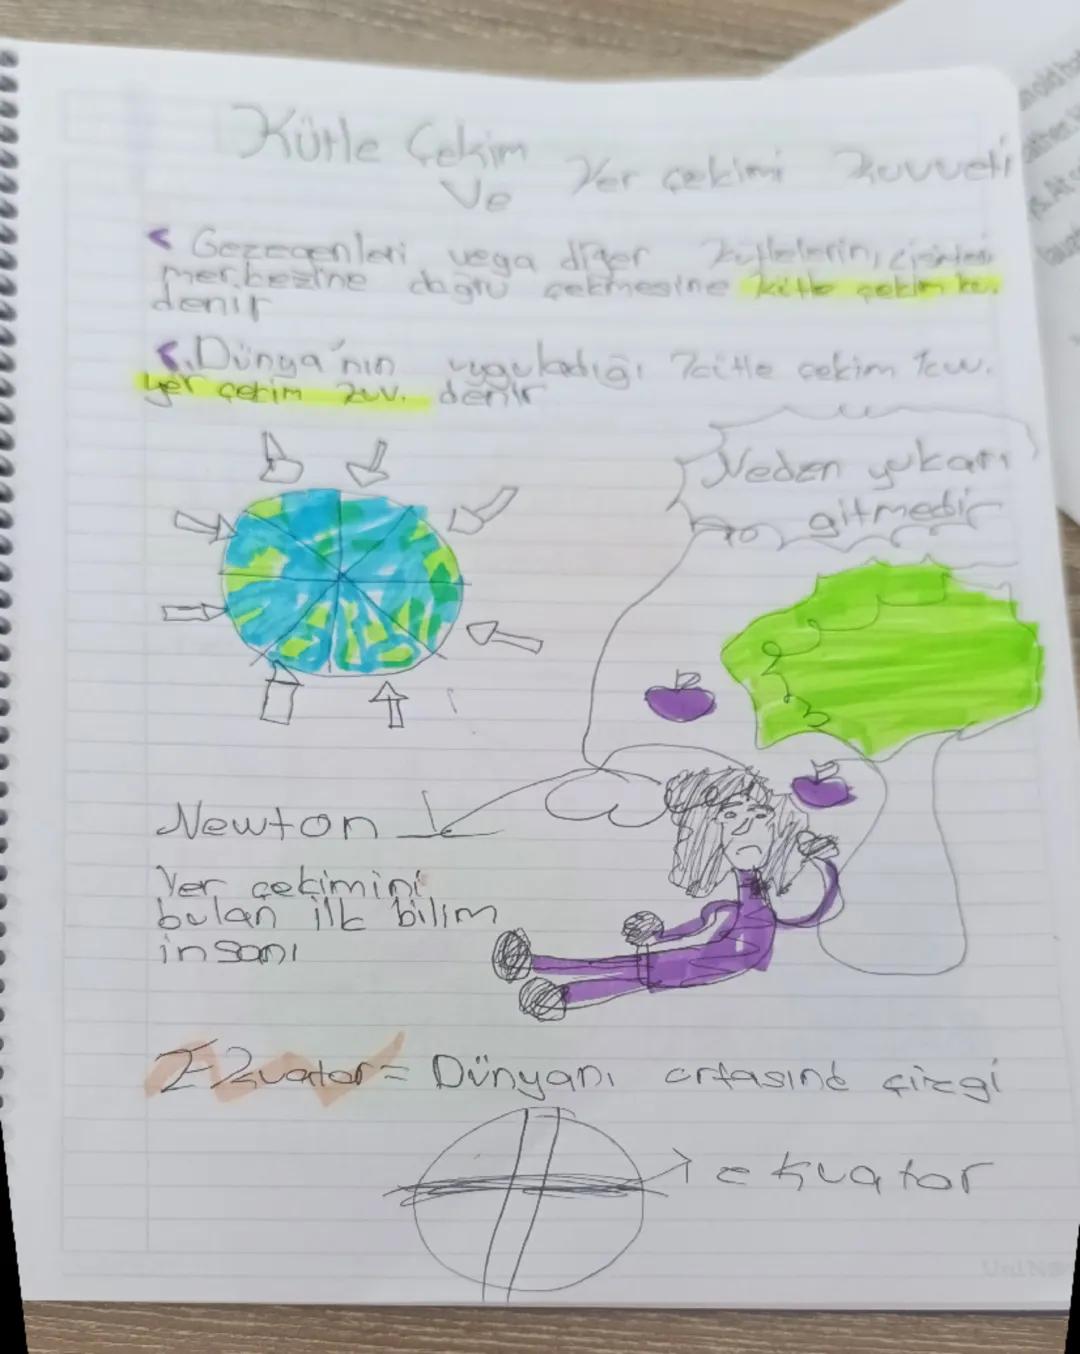 Kütle Çekim
Ve Yer çekimi Kuvveti
Gezegenleri veya diğer kütlelerin, cisimleri
merkezine doğru çekmesine kütle çekim kuv.
denir
Dünya'nın uyguladığı kütle çekim kuv.
yer çekim kuv. denir
Neden yukarı
gitmedir
Newton
Yer çekimini
bulan ilk bilim
insanı
Ekvator = Dünyanı ortasına çizgi
ekvator